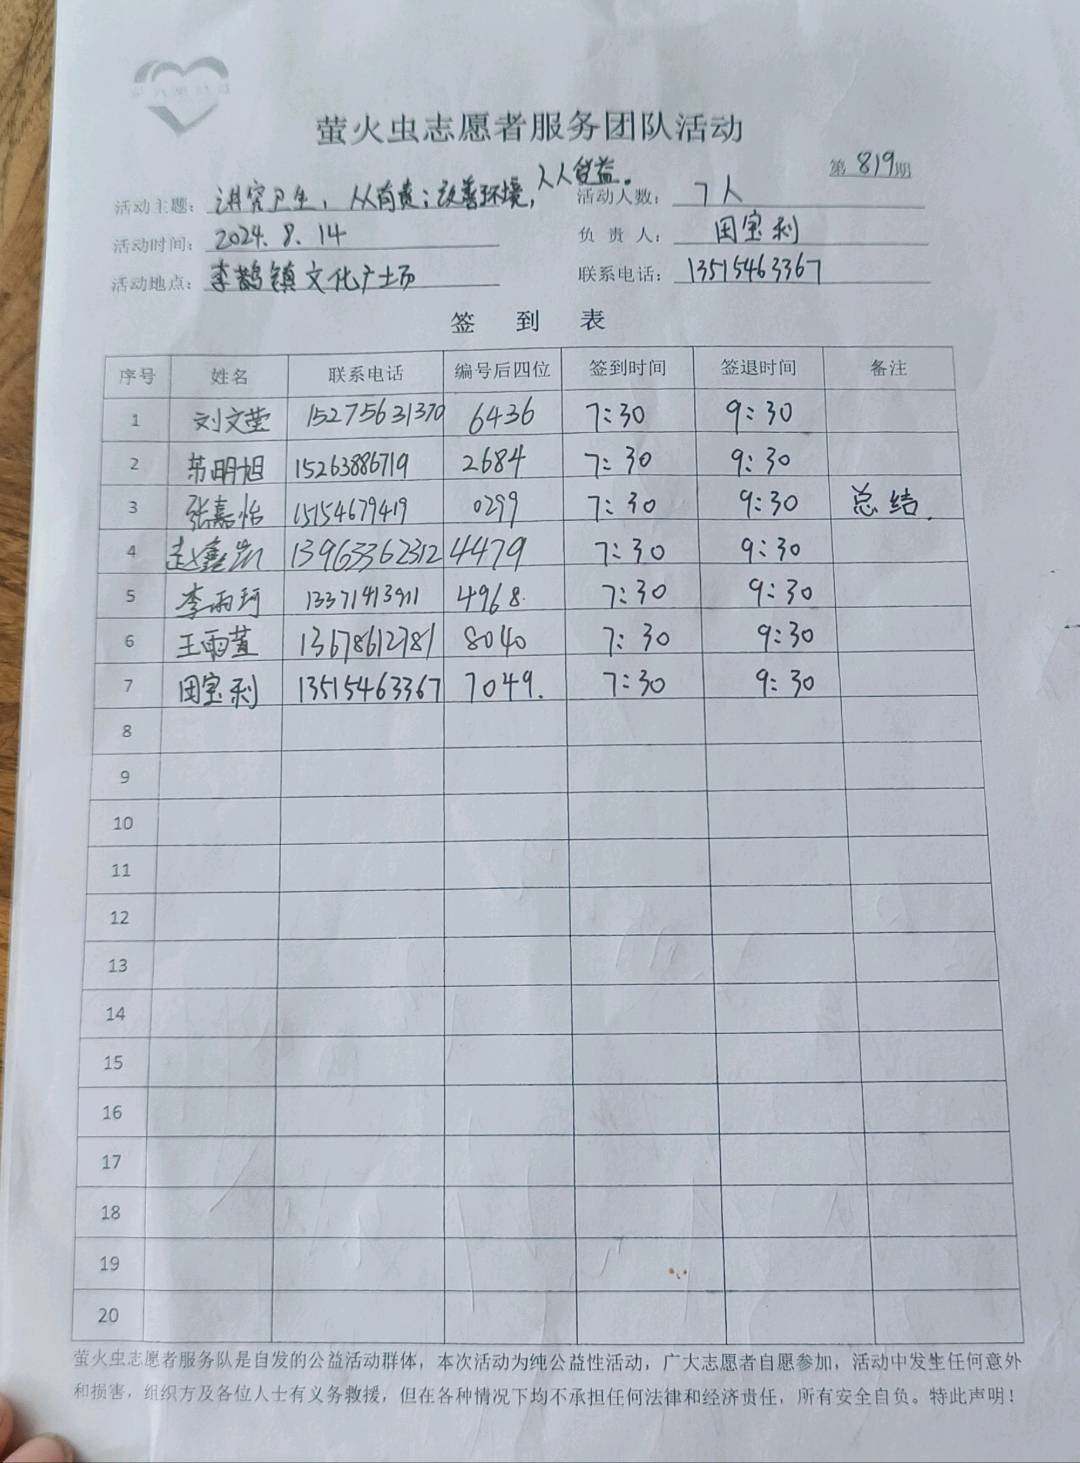 萤火虫志愿者服务团队活动
第819期
活动主题：讲究卫生，人人有责；改善环境，人人受益。 活动人数：7人
活动时间：2024.8.14 负责人：田宝利
活动地点：李鹊镇文化广场 联系电话：13515463367
签到表
序号 姓名 联系电话 编号后四位 签到时间 签退时间 备注
1 刘文莹 15275631370 6436 7:30 9:30
2 15263886719 2684 7:30 9:30
3 张嘉怡 15154679419 0299 7:30 9:30 总结.
4 赵鑫凯 13963362312 4479 7:30 9:30
5 李雨珂 13371413911 4968. 7:30 9:30
6 王雨萱 13678612781 8040 7:30 9:30
7 田宝利 13515463367 7049. 7:30 9:30
8
9
10
11
12
13
14
15
16
17
18
19
20
萤火虫志愿者服务队是自发的公益活动群体，本次活动为纯公益性活动，广大志愿者自愿参加，活动中发生任何意外
和损害，组织方及各位人士有义务救援，但在各种情况下均不承担任何法律和经济责任，所有安全自负。特此声明！